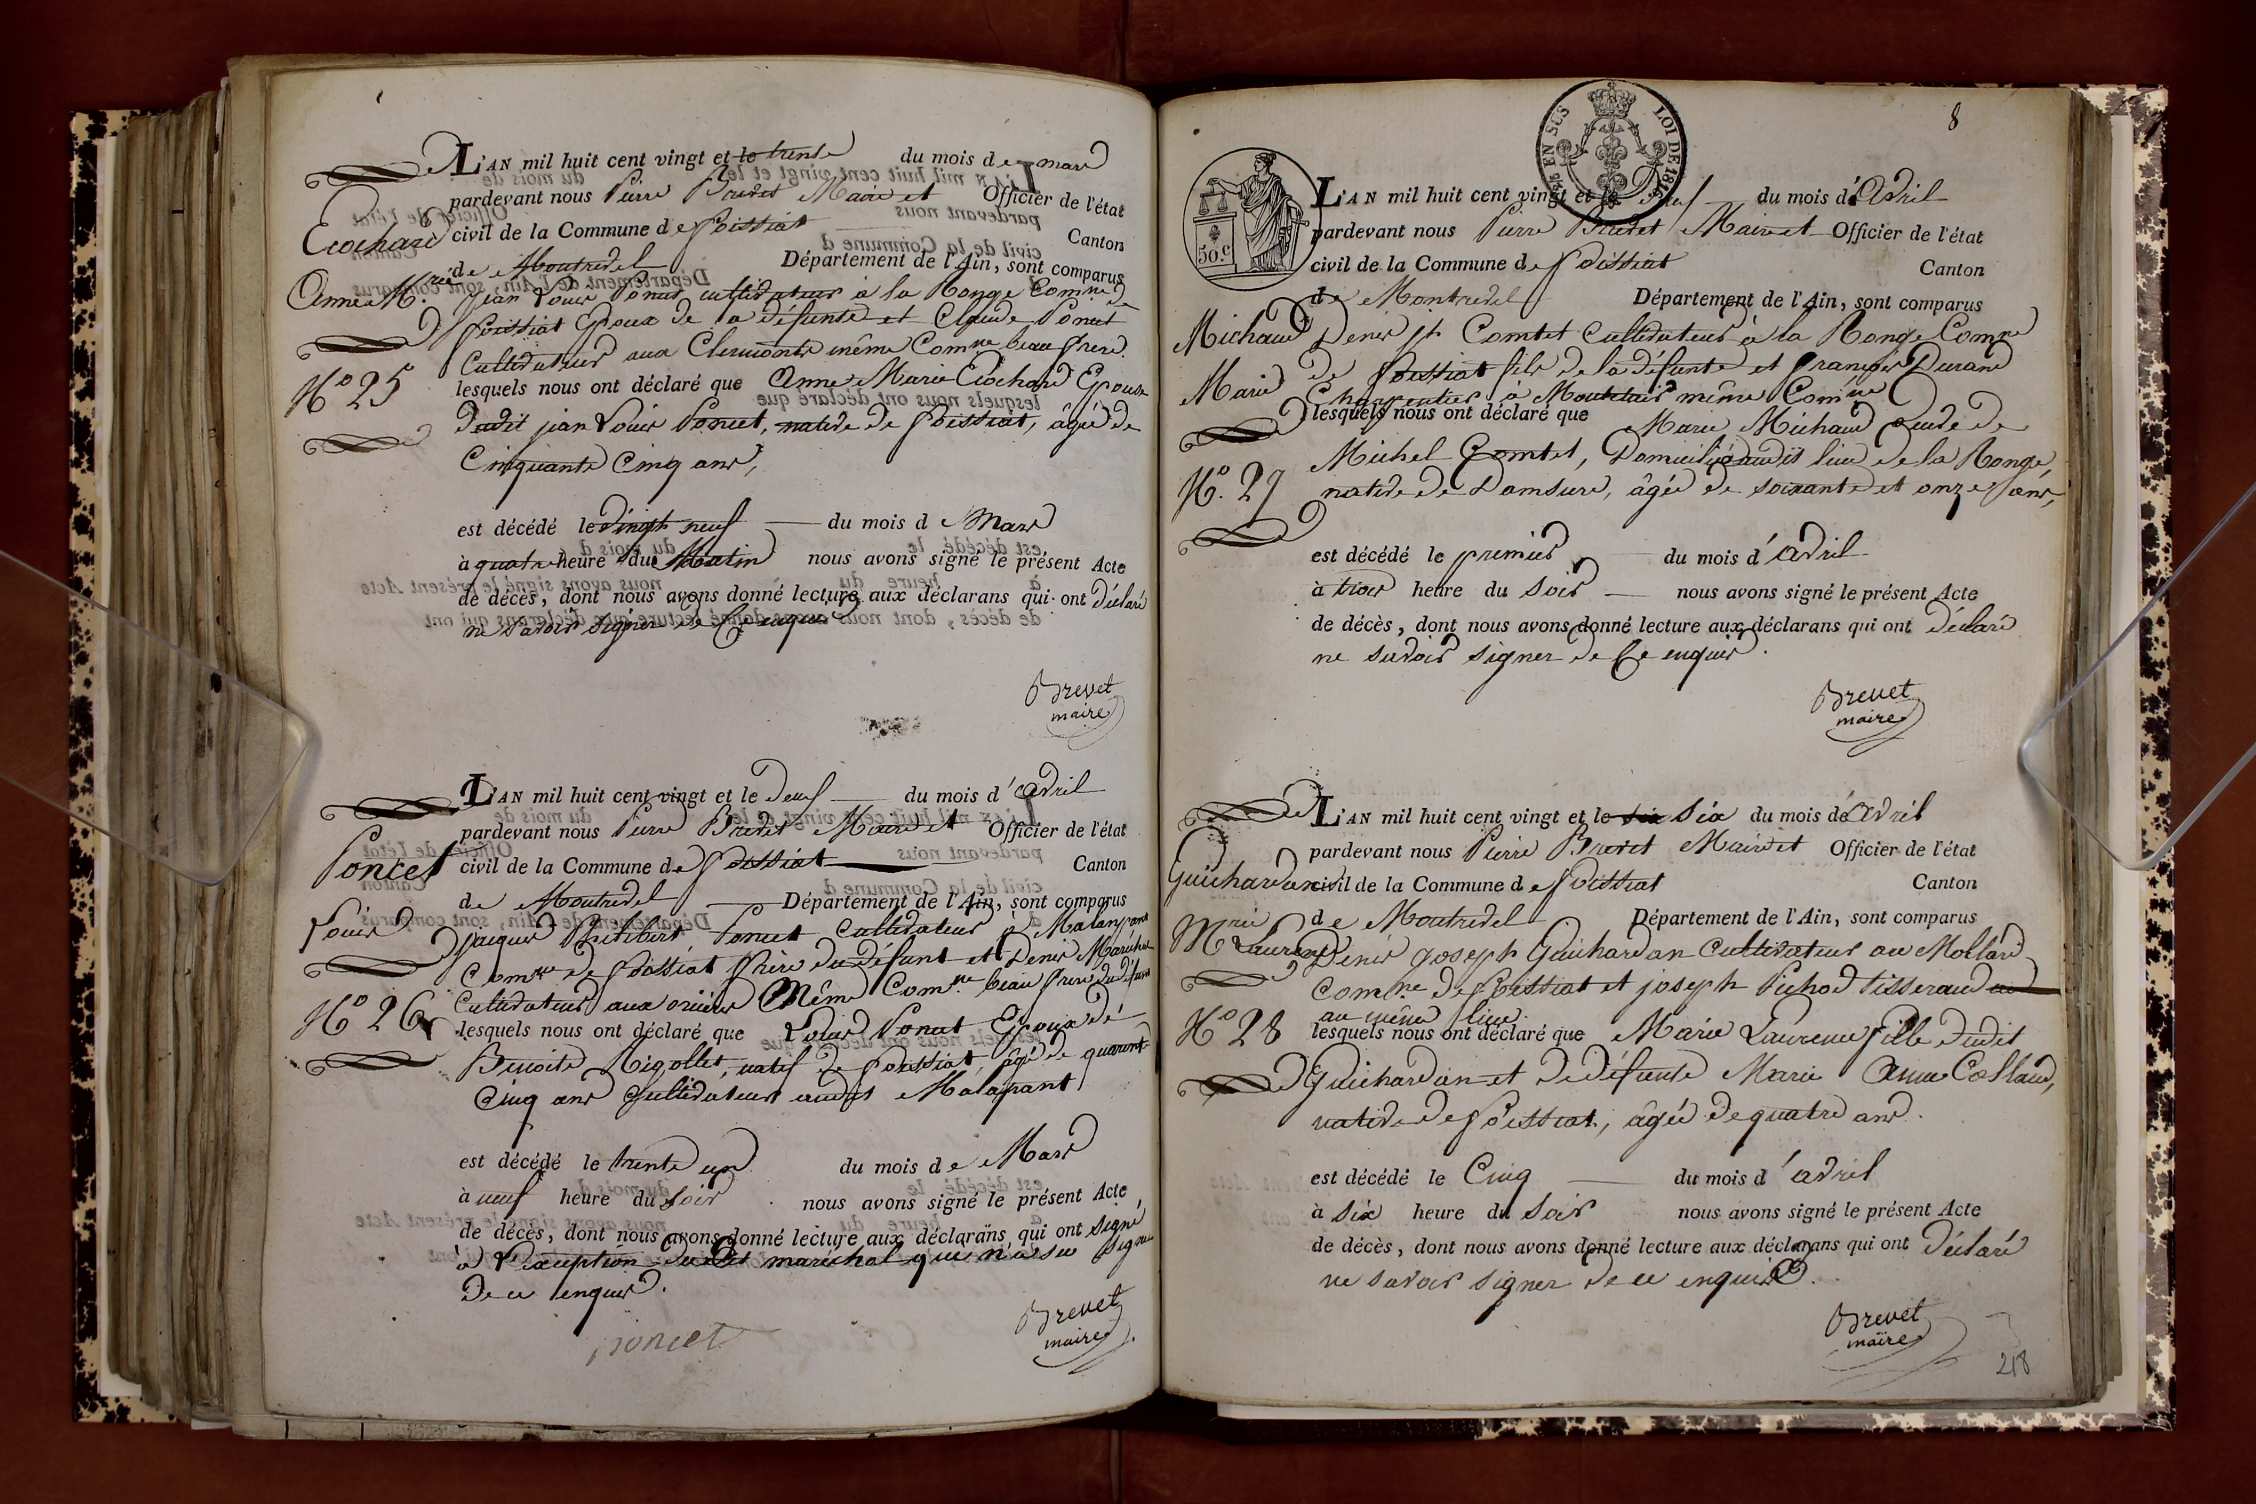 L'AN mil huit cent vingt et le trente du mois de mars
pardevant nous Pierre Brevet Maire et Officier de l'état
civil de la Commune de foissiat Canton
de Montrevel Département de l'Ain, sont comparus
Jean Louis Poncet cultivateur à la Ronge Comne de
foissiat Epoux de la défunte et Claude Poncet
Cultivateur aux Clermonts même Comne beau frere.
lesquels nous ont déclaré que Anne Marie Ecochard Epouse
dudit jean Louis Poncet, native de foissiat, âgée de
Cinquante Cinq ans,
est décédé le vingt neuf du mois de Mars
à quatre heure du Matin nous avons signé le présent Acte
de décès, dont nous avons donné lecture aux déclarans qui ont déclaré
ne savoir signer de Ce enquis
Brevet
maire
Ecochard
Anne M.rie
N.o 25
L'AN mil huit cent vingt et le deux du mois d'avril
pardevant nous Pierre Brevet Maire et Officier de l'état
civil de la Commune de foissiat Canton
de Montrevel Département de l'Ain, sont comparus
jaques Philibert Poncet Cultivateur à
Comne de foissiat frère du défunt et Denis Maréchal
Cultivateur aux même Comne beau frere du défunt
lesquels nous ont déclaré que Louis Poncet Epoux de
Benoite Rigollet, natif de foissiat, âgé de quarante
Cinq ans Cultivateur audit Malapant
est décédé le trente un du mois de Mars
à neuf heure du soir nous avons signé le présent Acte
de décès, dont nous avons donné lecture aux déclarans qui ont signé
à l'exception dudit maréchal que n'a su signer
de ce enquis.
poncet
Brevet
maire
Poncet
Louis
N.o 26
8
12/5 EN SUS LOI DE 1816
50.c
L'AN mil huit cent vingt et le deux du mois d'Avril
pardevant nous Pierre Brevet Maire et Officier de l'état
civil de la Commune de foissiat Canton
de Montrevel Département de l'Ain, sont comparus
Denis jh Comtet Cultivateur à la Ronge Comne
de foissiat fils de la défunte et françois Durand
Charpentier à même Comne
lesquels nous ont déclaré que Marie Michaud veuve de
Michel Comtet, Domiciliée audit lieu de la Ronge,
native de Domsure, âgée de soixante et onze ans,
est décédé le premier du mois d'avril
à trois heure du soir nous avons signé le présent Acte
de décès, dont nous avons donné lecture aux déclarans qui ont déclaré
ne savoir signer de Ce enquis.
Brevet
maire
Michaud
Marie
N.o 27
L'AN mil huit cent vingt et le six six du mois d'avril
pardevant nous Pierre Brevet Maire et Officier de l'état
civil de la Commune de foissiat Canton
de Montrevel Département de l'Ain, sont comparus
Denis joseph Guichardan Cultivateur au Mollard
Comne de foissiat et joseph Pichod tisserand
au même lieu.
lesquels nous ont déclaré que Marie Laurence fille dudit
Guichardan et de défunte Marie Anne
native de foissiat, âgée de quatre ans.
est décédé le Cinq du mois d'avril
à six heure du soir nous avons signé le présent Acte
de décès, dont nous avons donné lecture aux déclarans qui ont déclaré
ne savoir signer de ce enquis.
Brevet
maire
Guichardan
M.rie Laurence
N.o 28
218